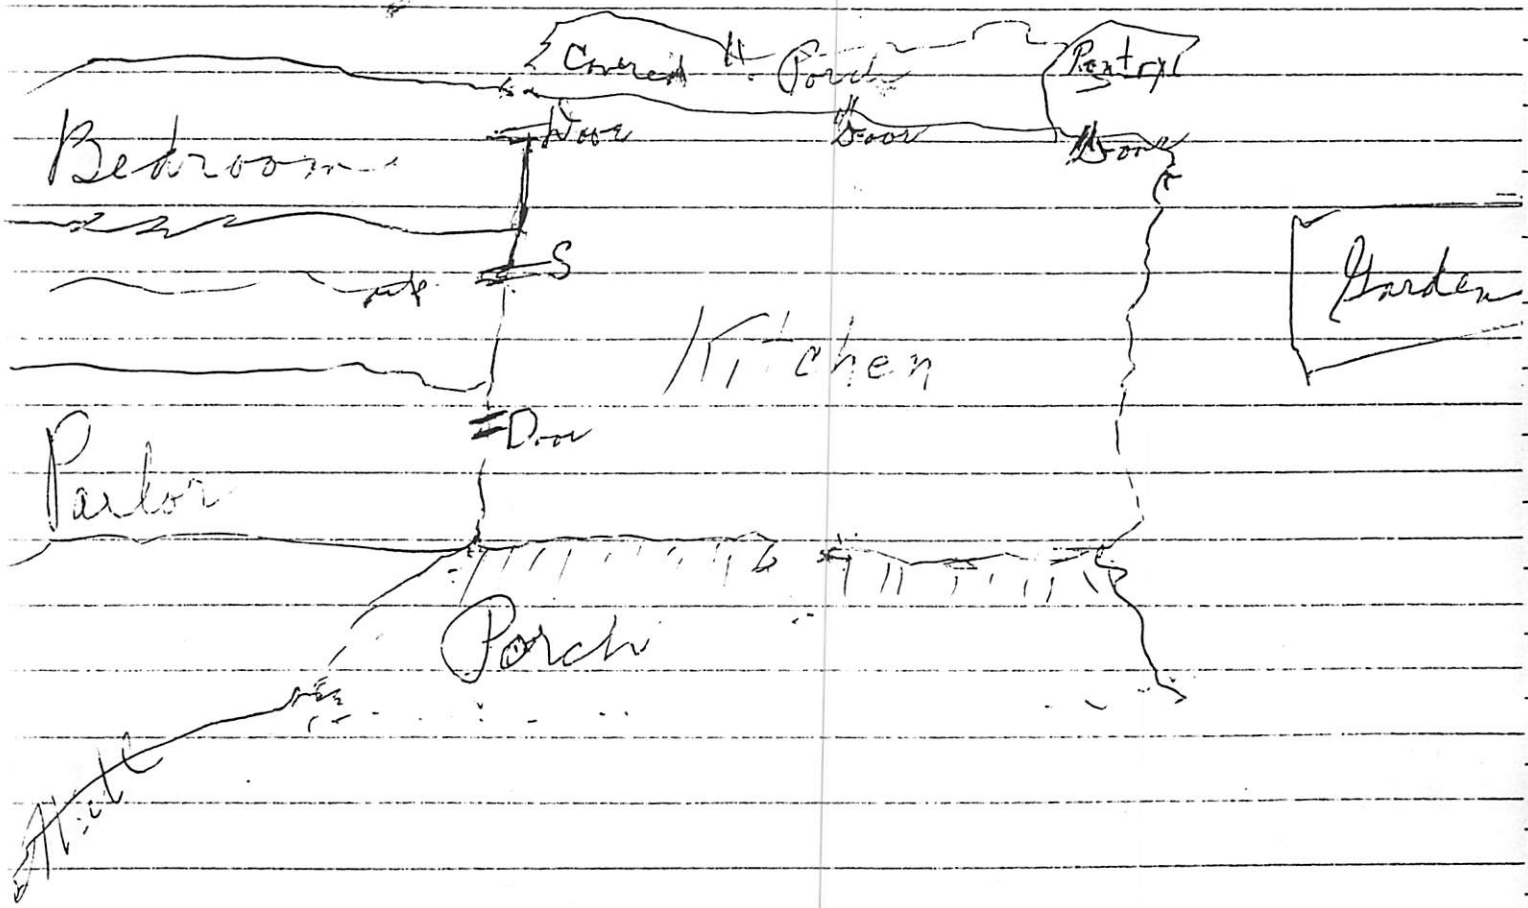 Covered Porch Pantry
Door Door Door
Bedroom
S
Garden
Kitchen
Door
Parlor
Porch